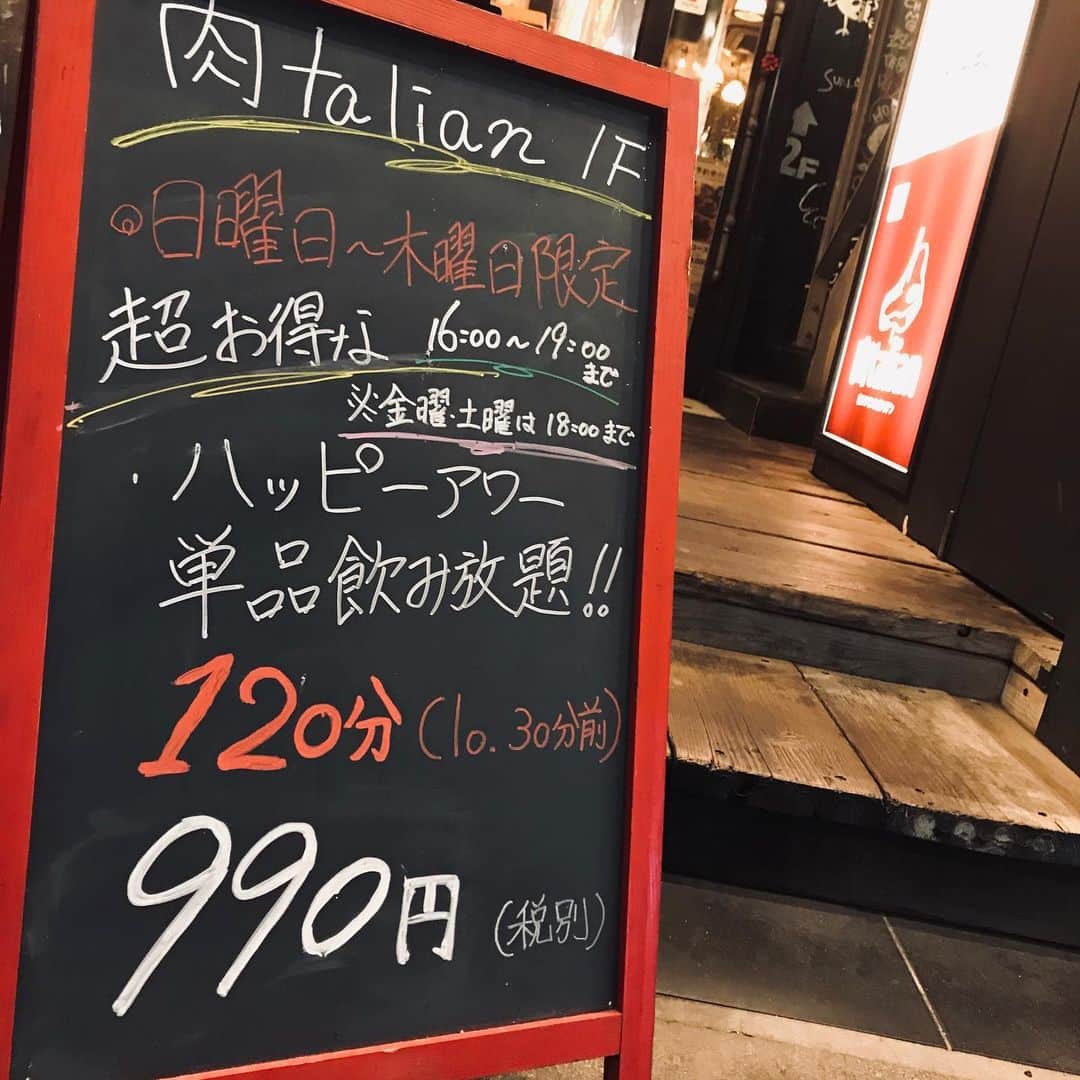 肉talian 1F
◎日曜日～木曜日限定
超お得な 16:00～19:00まで
※金曜・土曜は18:00まで
・ハッピーアワー
単品飲み放題!!
120分(lo.30分前)
990円(税別)
2F
肉talian